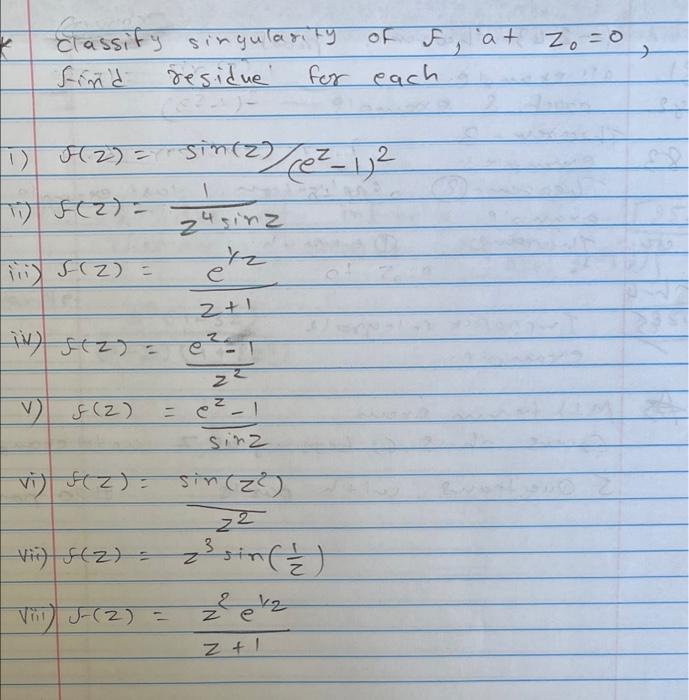 * classify singularity of f, at z₀ = 0,
find residue for each
i) f(z) = sin(z)/(e^z - 1)^2
ii) f(z) = 1/(z^4 sin z)
iii) f(z) = e^(1/z)/(z + 1)
iv) f(z) = (e^z - 1)/z^2
v) f(z) = (e^z - 1)/sin z
vi) f(z) = sin(z^2)/z^2
vii) f(z) = z^3 sin(1/z)
viii) f(z) = z^2 e^(1/z)/(z + 1)